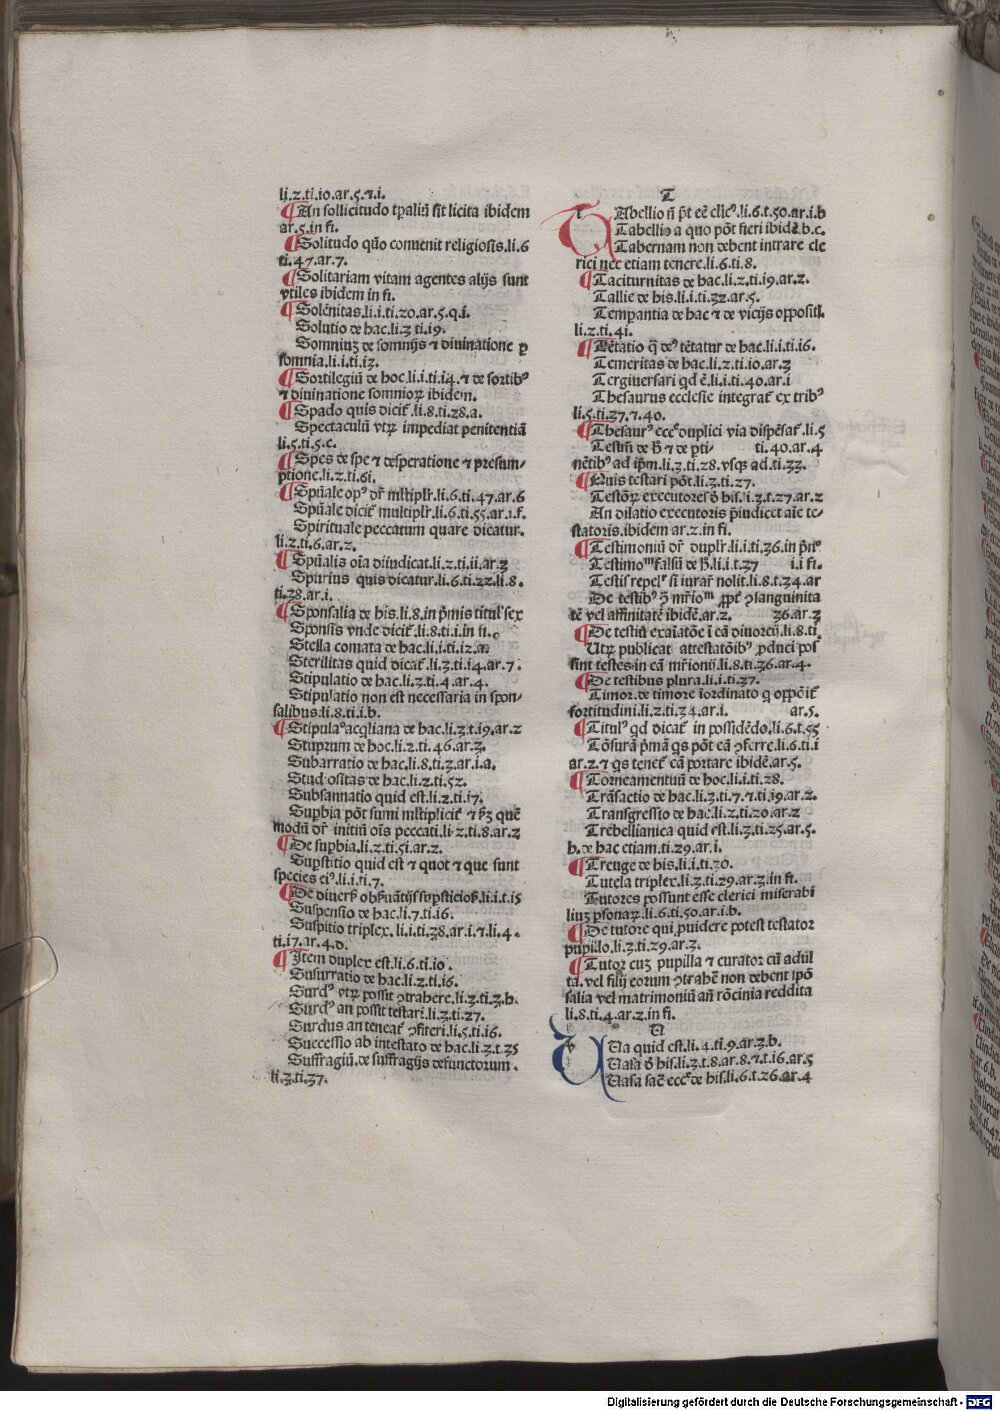 li.2.ti.10.ar.5.⁊.i.
¶ An sollicitudo tꝑaliū sit licita ibidem
ar.5.in fi.
¶ Solitudo qn̄o conuenit religiosis.li.6
ti.47.ar.7.
¶ Solitariam vitam agentes alijs sunt
vtiles ibidem in fi.
¶ Solēnitas.li.i.ti.20.ar.5.q.i.
Solutio de hac.li.3 ti.19.
Somniuꝫ de somnijs ⁊ diuinatione ꝑ
somnia.li.i.ti.i3.
¶ Sortilegiū de hoc.li.i.ti.i4.⁊ de sortibꝰ
⁊ diuinatione somnioꝝ ibidem.
¶ Spado quis dicit̄.li.8.ti.28.a.
Spectaculū vtꝝ impediat penitentiā
li.5.ti.5.c.
¶ Spes de spe ⁊ desperatione ⁊ presum-
ptione.li.2.ti.6i.
¶ Spūale opꝰ dr̄ ml̄tiplr̄.li.6.ti.47.ar.6
Spūale dicit̄ multiplr̄.li.6.ti.55.ar.i.f.
Spirituale peccatum quare dicatur.
li.2.ti.6.ar.2.
¶ Spūalis oīa diiudicat.li.2.ti.ii.ar.3
Spurius quis dicatur.li.6.ti.22.li.8.
ti.38.ar.i.
¶ Sponsalia de his.li.8.in p̄mis titul' sex
Sponsis vnde dicit̄.li.8.ti.i.in fi.
Stella comata de hac.li.i.ti.i2.a.
Sterilitas quid dicat̄.li.3.ti.i4.ar.7.
Stipulatio de hac.li.3.ti.4.ar.4.
Stipulatio non est necessaria in spon-
salibus.li.8.ti.i.b.
¶ Stipulaº acq̄liana de hac.li.3.t.i9.ar.2
Stuprum de hoc.li.2.ti.46.ar.3.
Subarratio de hac.li.8.ti.3.ar.i.a.
Studiositas de hac.li.2.ti.52.
Subsannatio quid est.li.2.ti.i7.
Supbia pōt sumi ml̄tiplicit̄ ⁊ hꝫ quē
modū dr̄ initiū oīs peccati.li.2.ti.8.ar.2
¶ De supbia.li.2.ti.5i.ar.2.
Supstitio quid est ⁊ quot ⁊ que sunt
species eiꝰ.li.i.ti.7.
¶ De diuers̄ obs̄uātijs supsticios̄.li.i.t.i5
Suspensio de hac.li.7.ti.i6.
Suspitio triplex.li.i.ti.38.ar.i.⁊.li.4.
ti.i7.ar.4.d.
¶ Item duplex est.li.6.ti.io.
Susurratio de hac.li.2.ti.i6.
Surdꝰ vtꝝ possit ꝯtrahere.li.3.ti.3.b.
Surdꝰ an possit testari.li.3.ti.27.
Surdus an teneat̄ ꝯfiteri.li.5.ti.i6.
Successio ab intestato de hac.li.3.t.35
Suffragiū.de suffragijs defunctorum.
li.3.ti.37.
T
TAbellio nō pōt eē clic̄ꝰ.li.6.t.50.ar.i.b
Tabellio a quo pōt fieri ibidē.b.c.
Tabernam non debent intrare cle
rici nec etiam tenere.li.6.ti.8.
¶ Taciturnitas de hac.li.2.ti.19.ar.2.
Tallie de his.li.i.ti.32.ar.5.
Temperantia de hac ⁊ de vicijs opposit̄.
li.2.ti.4i.
¶ Tētatio q̄ deꝰ tētatur de hac.li.i.ti.i6.
Temeritas de hac.li.2.ti.io.ar.3
Tergiuersari qd ē.li.i.ti.40.ar.i
Thesaurus ecclesie integrat̄ ex tribꝰ
li.5.ti.37.⁊.40.
¶ Thesaurꝰ ecc̄e duplici via dispēsat̄.li.5
Testm̄ de h̄ ⁊ de pti- ti.40.ar.4
nētibꝰ ad ip̄m.li.3.ti.28.vsqꝫ ad.ti.33.
¶ Quis testari pōt.li.3.ti.27.
Testōꝝ executores de his.li.3.t.27.ar.2
An dilatio executoris p̄iudicet aīe te-
statoris.ibidem ar.2.in fi.
¶ Testimoniū dr̄ duplr̄.li.i.ti.36.in p̄nº
Testimoᵐ falsū de h̄.li.i.t.37 i.i fi.
Testis repel̄r si iurar̄ nolit.li.8.t.34.ar
De testibꝰ q̄ mr̄ioᵐ ꝓpt̄ ꝯsanguinita
tē vel affinitatē ibidē.ar.2. 36.ar.3
¶ De testiū exaīatōe ī cā diuorcij.li.8.ti.
Utꝝ publicat̄ attestatōibꝰ ꝓduci pos
sint testes in cā mr̄ionij.li.8.ti.36.ar.4.
¶ De testibus plura.li.i.ti.37.
Timor.de timore īordinato q̇ oppōit̄
fortitudini.li.2.ti.34.ar.i. ar.5.
¶ Titulꝰ qd dicat̄ in possidēdo.li.6.t.55
Tōsurā p̄mā qs pōt eā ꝯferre.li.6.ti.i
ar.2.⁊ qs tenet̄ eā portare ibidē.ar.5.
¶ Torneamentuū de hoc.li.i.ti.28.
Trāsactio de hac.li.3.ti.7.⁊.ti.i9.ar.2.
Transgressio de hac.li.2.ti.20.ar.2
Trebellianica quid est.li.3.ti.25.ar.5.
b.de hac etiam.ti.29.ar.i.
¶ Treuge de his.li.i.ti.30.
Tutela triplex.li.3.ti.29.ar.3.in fi.
Tutores possunt esse clerici miserabi
liuꝫ ꝑsonaꝝ.li.6.ti.50.ar.i.b.
¶ De tutore qui ꝓuidere potest testator
pupillo.li.3.ti.29.ar.3.
¶ Tutor cuꝫ pupilla ⁊ curator cū adul
ta.vel filij eorum ꝯtrahē non debent spō
salia vel matrimoniū an̄ rōcinia reddita
li.8.ti.4.ar.2.in fi.
U
UUa quid est.li.4.ti.9.ar.3.b.
Uasa de his.li.3.t.8.ar.8.⁊.t.i6.ar.5
Uasa sac̄ ecc̄e de his.li.6.t.26.ar.4
Digitalisierung gefördert durch die Deutsche Forschungsgemeinschaft - DFG